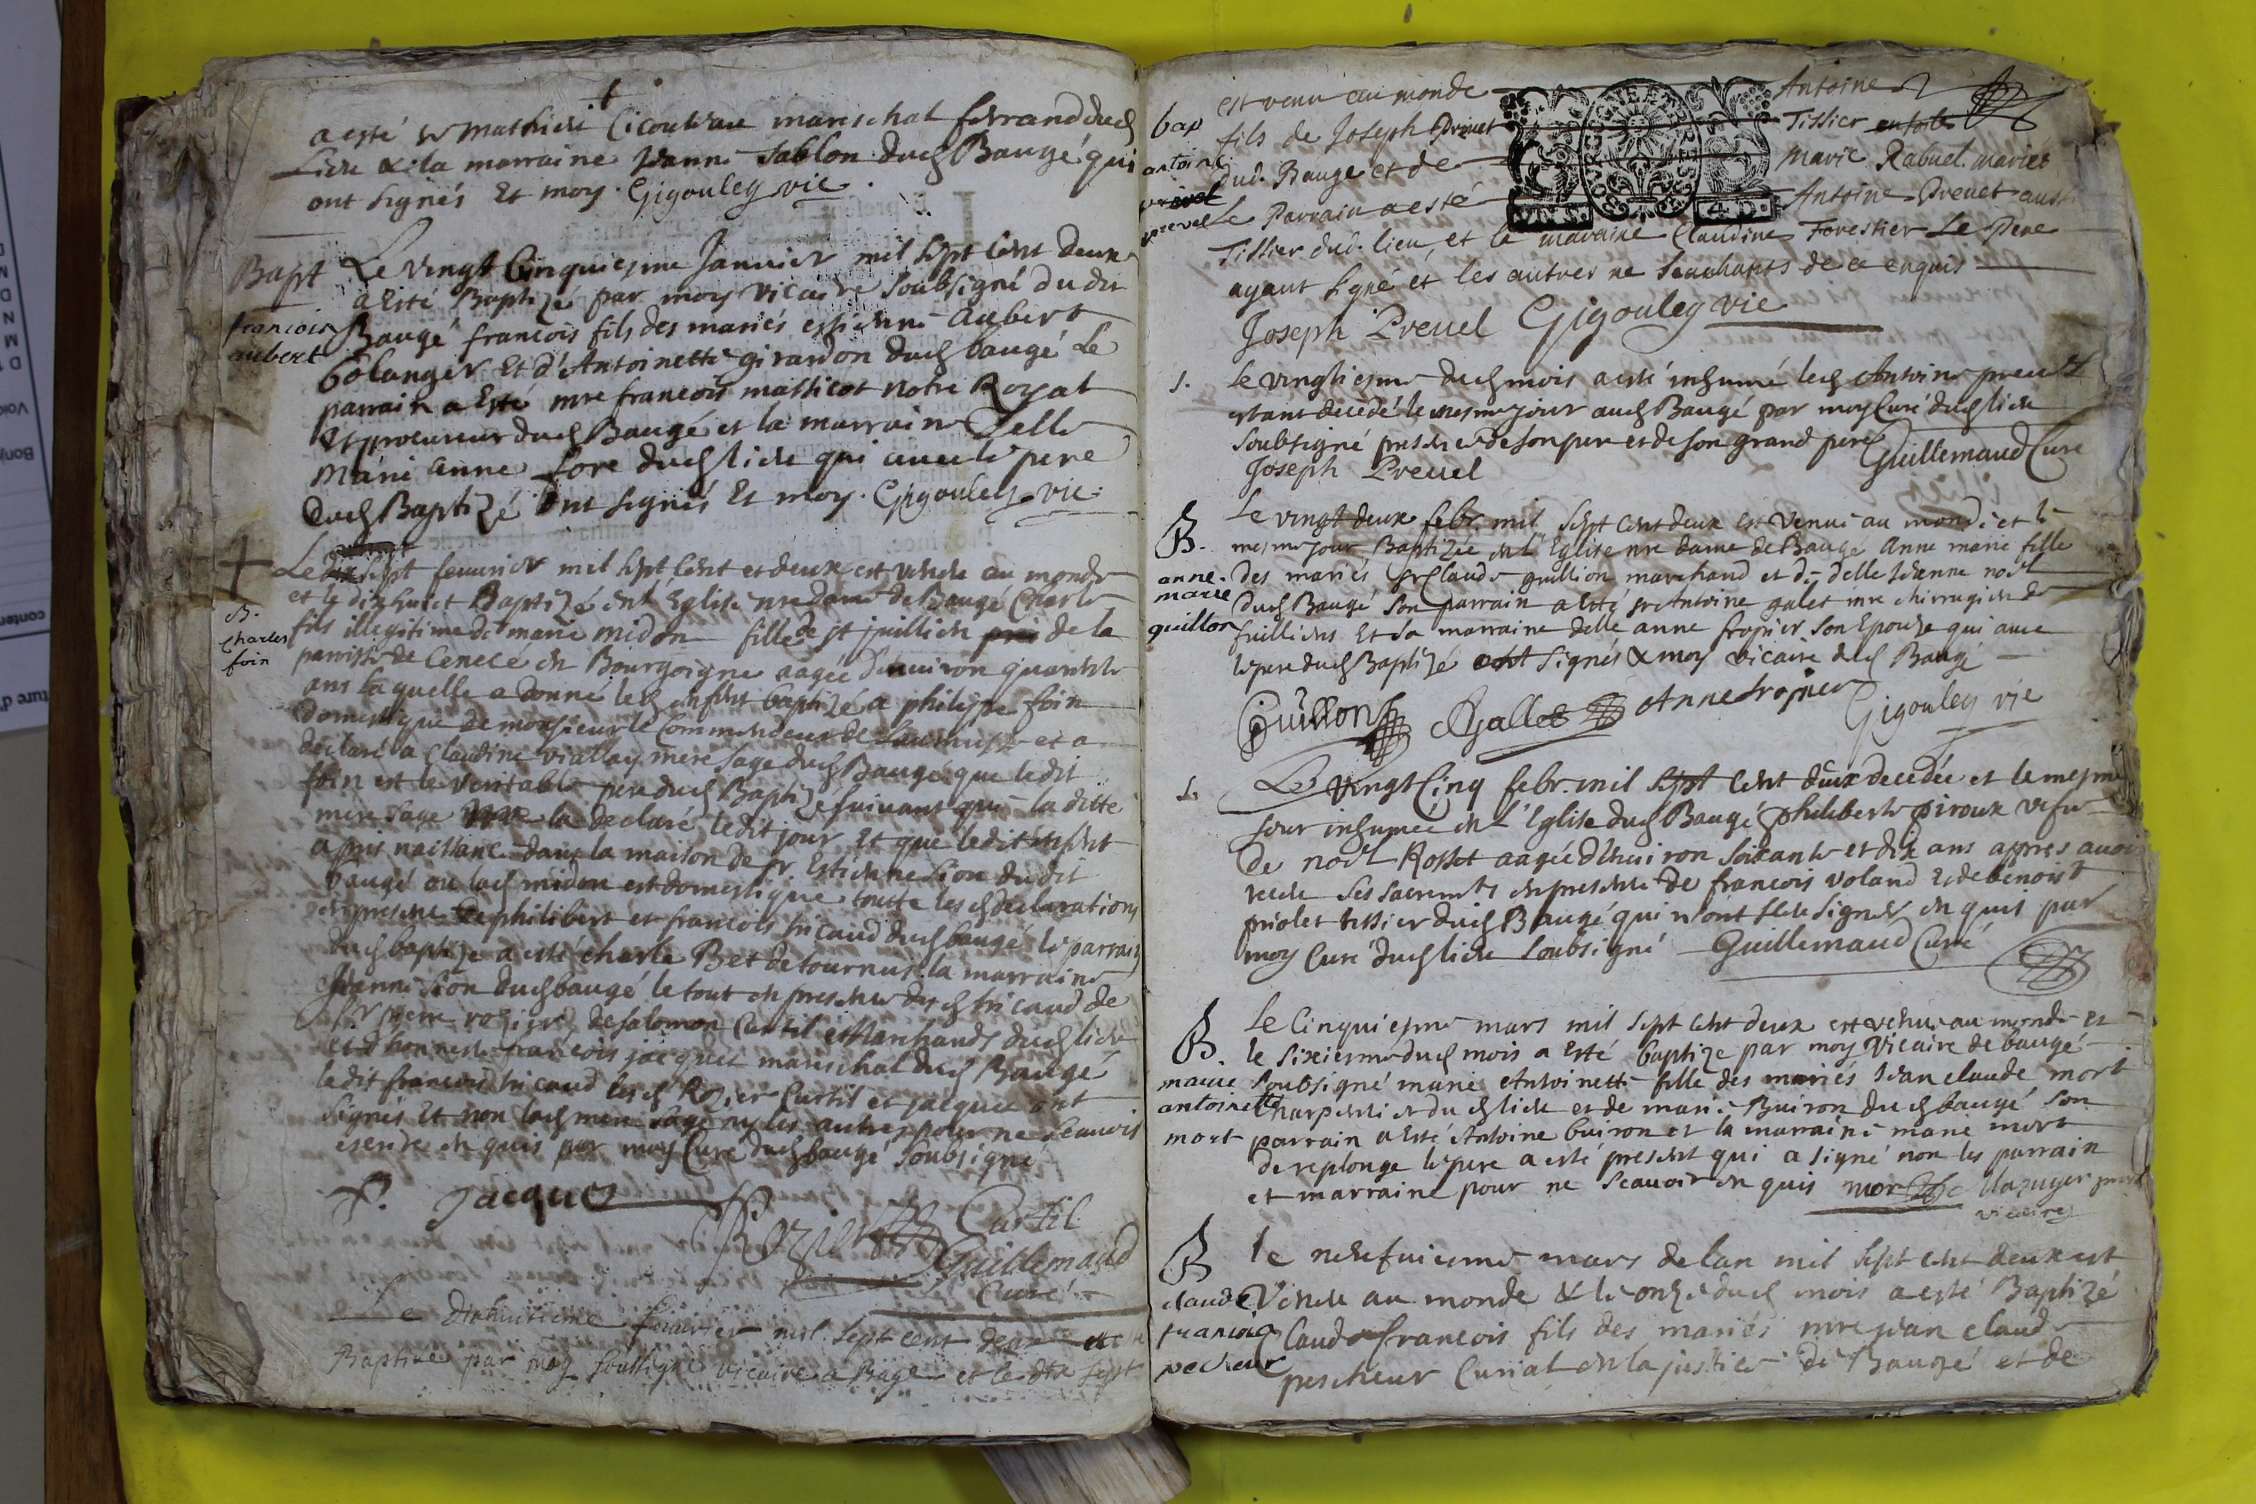 a esté Sr Mathieu Cicouteau mareschal ferrand dud
Lieu & la marraine Jeanne Sablon dud Baugé qui
ont signés Et moy. Gigouley vic.
Bapt
francois
aubert
Le vingt Cinquiesme Janvier mil sept Cent deux
a Esté Baptizé par moy Vicaire Soubsigné dudit
Baugé francois fils des mariés estienne Aubert
bolanger Et d'Antoinette girardon dud baugé Le
parrain a Esté mre francois massicot Notre Royal
Et procureur dud Baugé et la marraine Delle
Marie anne Lore dud lieu qui avec le pere
dud Baptizé Ont signés Et moy. Gigouley vic:
B.
Charles
foin
Le sept feuvrier mil sept Cent et deux est venu au monde
et le dixhuict Baptizé en l'Eglise nre dame de Baugé Charle
fils illegitime de marie midon fille de st juillien de la
parroisse de Cenecé en Bourgoigne aagée d'environ quarente
ans laquelle a donné led enfent baptizé a philippe foin
domestique de monsieur le Commendeur de Laumusse et a
declaré a Claudine viallay mere sage dud Baugé que ledit
foin est le veritable pere dud Baptizé suivant que la ditte
mere sage la declaré ledit jour Et que ledit enfent
a pris naissance dans la maison de sr. Estienne Sion dudit
baugé ou lad midon est domestique toutte lesd declarations
en presence de philibert et francois fricaud dud baugé le parrain
dud baptizé a esté charle Bet de tournus la marraine
Jeanne Sion dud baugé le tout en presence desd fricaud de
sr pierre rozier de salomon Curtil Marchands dud lieu
et d'honneste francois jacquet mareschal dud Baugé
ledit francois fricaud lesd Rozier Curtil et jacquet ont
signés Et non lad mere sage ny les autres pour ne scauoir
escrire en quis par moy Curé dud baugé soubsigné
F. Jacquet Rozier Curtil
Guillemaud
Curé
Le dixhuitieme feuvrier mil sept cent deux
Baptisé par moy soussigné vicaire a Bagé et le dix sept
bap
antoine
prevel
est venu au monde Antoine
fils de Joseph Prevet Tissier
dud. Baugé et de Marie Rabuel mariés
Le Parrain a esté Antoine Prevet aussi
Tissier dud. lieu et la maraine Claudine Forestier Le Pere
ayant signé et les autres ne scachants de ce enquis
Joseph Prevel Gigouley vic
BOURG GNE ET BRESSE
VN. S. 4. D.
S.
Le vingtiesme dud mois a esté inhumé led Antoine prevet
estant decedé le mesme jour aud Baugé par moy Curé dud lieu
soubsigné presence de son pere et de son grand pere
Joseph Prevel Guillemaud Curé
B.
anne
marie
guillon
Le vingt deux febr. mil sept Cent deux est venue au monde et le
mesme jour Baptizée en l'Eglise nre dame de Baugé Anne marie fille
des mariés sr Claude guillion marchand et de delle Jeanne noel
dud Baugé Son parrain a Esté sr Antoine galet mre chirrugien de
fuilliens Et sa marraine delle anne fropier Son Epouze qui avec
le pere dud Baptizé ont signés & moy vicaire dud Baugé
Guillon AGallet Anne fropier Gigouley vic
S.
Le vingt Cinq febr. mil sept Cent deux decedée et le mesme
jour inhumée en l'Eglise dud Baugé Philiberte piroux vefve
de noel Rosset aagée d'environ soixante et dix ans appres avoir
receu ses sacrements en presence de francois voland Et de benoist
priolet tissier dud Baugé qui n'ont sceu signer en quis par
moy Curé dud lieu soubsigné Guillemaud Curé
B.
marie
antoinette
mort
Le Cinquiesme mars mil sept cent deux est venue au monde et
le sixiesme dud mois a esté baptize par moy Vicaire de baugé
soubsigné marie Antoinette fille des mariés Jean claude mort
Charpentier dud lieu et de marie Buiron dud baugé Son
parrain a esté Antoine buiron et la marraine marie mort
de replonge le pere a esté present qui a signé non les parrain
et marraine pour ne scauoir en quis mort
vicaire
B
claude
francois
pecheur
le neufuiesme mars de lan mil sept cent deux est
Venu au monde & le onze dud mois a esté Baptizé
Claude francois fils des mariés mre jean claude
pescheur Curial en la justice de Baugé et de